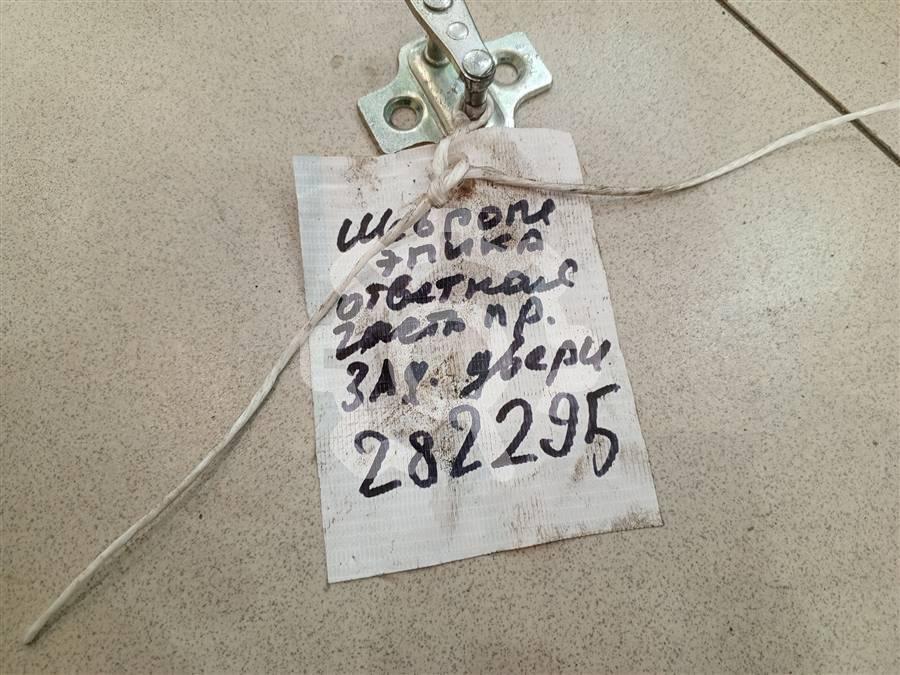 Шевроле
эпика
ответная
часть пр.
зад. двери
282295